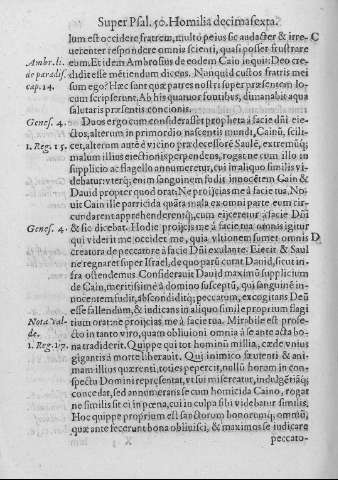 Super Psal. 50. Homilia decimasexta.
lum est occidere fratrem, multò peius sic audacter & irre- C
uerenter respondere omnis scienti, quasi posset frustrare
Ambr. li. eum. Et idem Ambrosius de eodem Cain inquit: Deo cre-
de paradis. didit esse mētiendum dicens. Nunquid custos fratris mei
cap. 14. sum ego? Hæc sunt quæ patres nostri super præsentem lo-
cum scripserunt. A his quatuor fontibus, dimanabit aqua
salutaris præsentis concionis.
Genes. 4. Duos ergo cum considerasset propheta à facie dñi eie-
ctos, alterum in primordio nascentis mundi, Cainũ, scili-
1. Reg. 15. cet, alterum autē vicino prædecessorē Saulē, extremũq;
malum illius eiectionis perpendens, rogat ne cum illo in
supplicio ac flagello annumeretur, cui in aliquo similis vi-
debatur: vterq; enim sanguinem fudit innocētem Cain &
Dauid propter quod orat: Ne proijcias me à facie tua. No-
uit Cain ille parricida quāta mala ex omni parte eum cir-
cundarent apprehenderentq;, cum eijceretur à facie Dñi
Genes. 4. & sic dicebat. Hodie proijcis me à facie tua omnis igitur
qui viderit me occidet me, quia vltionem sumet omnis D
creatura de peccatore à facie Dñi exulante. Eiecit & Saul
ne regnaret super Israel, de quo parũ curat Dauid, sicut in-
fra ostendemus. Considerauit Dauid maximũ supplicium
de Cain, meritissimè à domino susceptũ, qui sanguinē in-
nocentem fudit, abscondidtq; peccatum, excogitans Deũ
esse fallendum, & indicans in aliquo simile proprium flagi
Nota val- tium orat ne proijcias me à facie tua. Mirabile est profe-
de. cto in tanto viro, quam obliuioni omnia à se ante acta bo-
1. Reg. 17. na tradiderit. Quippe qui tot hominũ millia, cæde vnius
gigantis à morte liberauit. Qui inimico sæuienti & ani-
mam illius quærenti, toties pepercit, nullũ horam in con-
spectu Domini repræsentat, vt sui misereatur, indulgētiāq;
concedat, sed annumerans se cum homicida Caino, rogat
ne similis sit ei in pœna, cui in culpa sibi videbatur similis.
Hoc quippe proprium est sanctorum bonorumq; omniũ,
quæ ante fecerunt bona obliuisci, & maximos se iudicare
peccato-